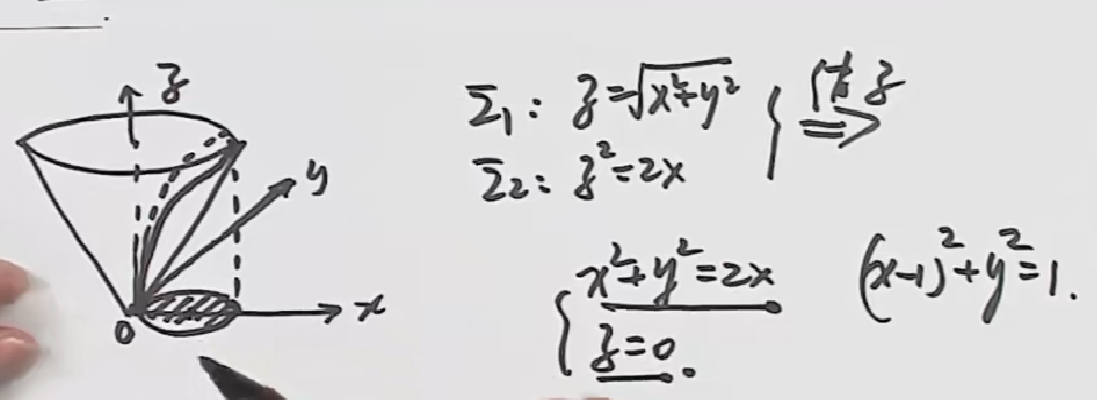 z
y
x
0
Σ₁: z=√(x²+y²)
Σ₂: z²=2x
消 z
⇒
{ x²+y²=2x
z=0.
(x-1)²+y²=1.